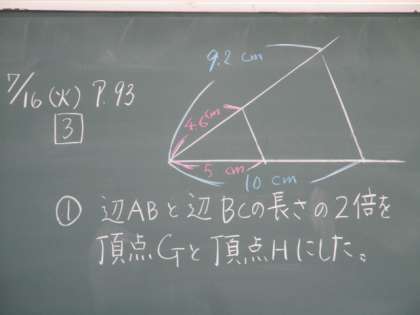 9.2 cm
7/16(火) P.93
3
4.6cm
5 cm
10 cm
① 辺ABと辺BCの長さの2倍を
頂点Gと頂点Hにした。